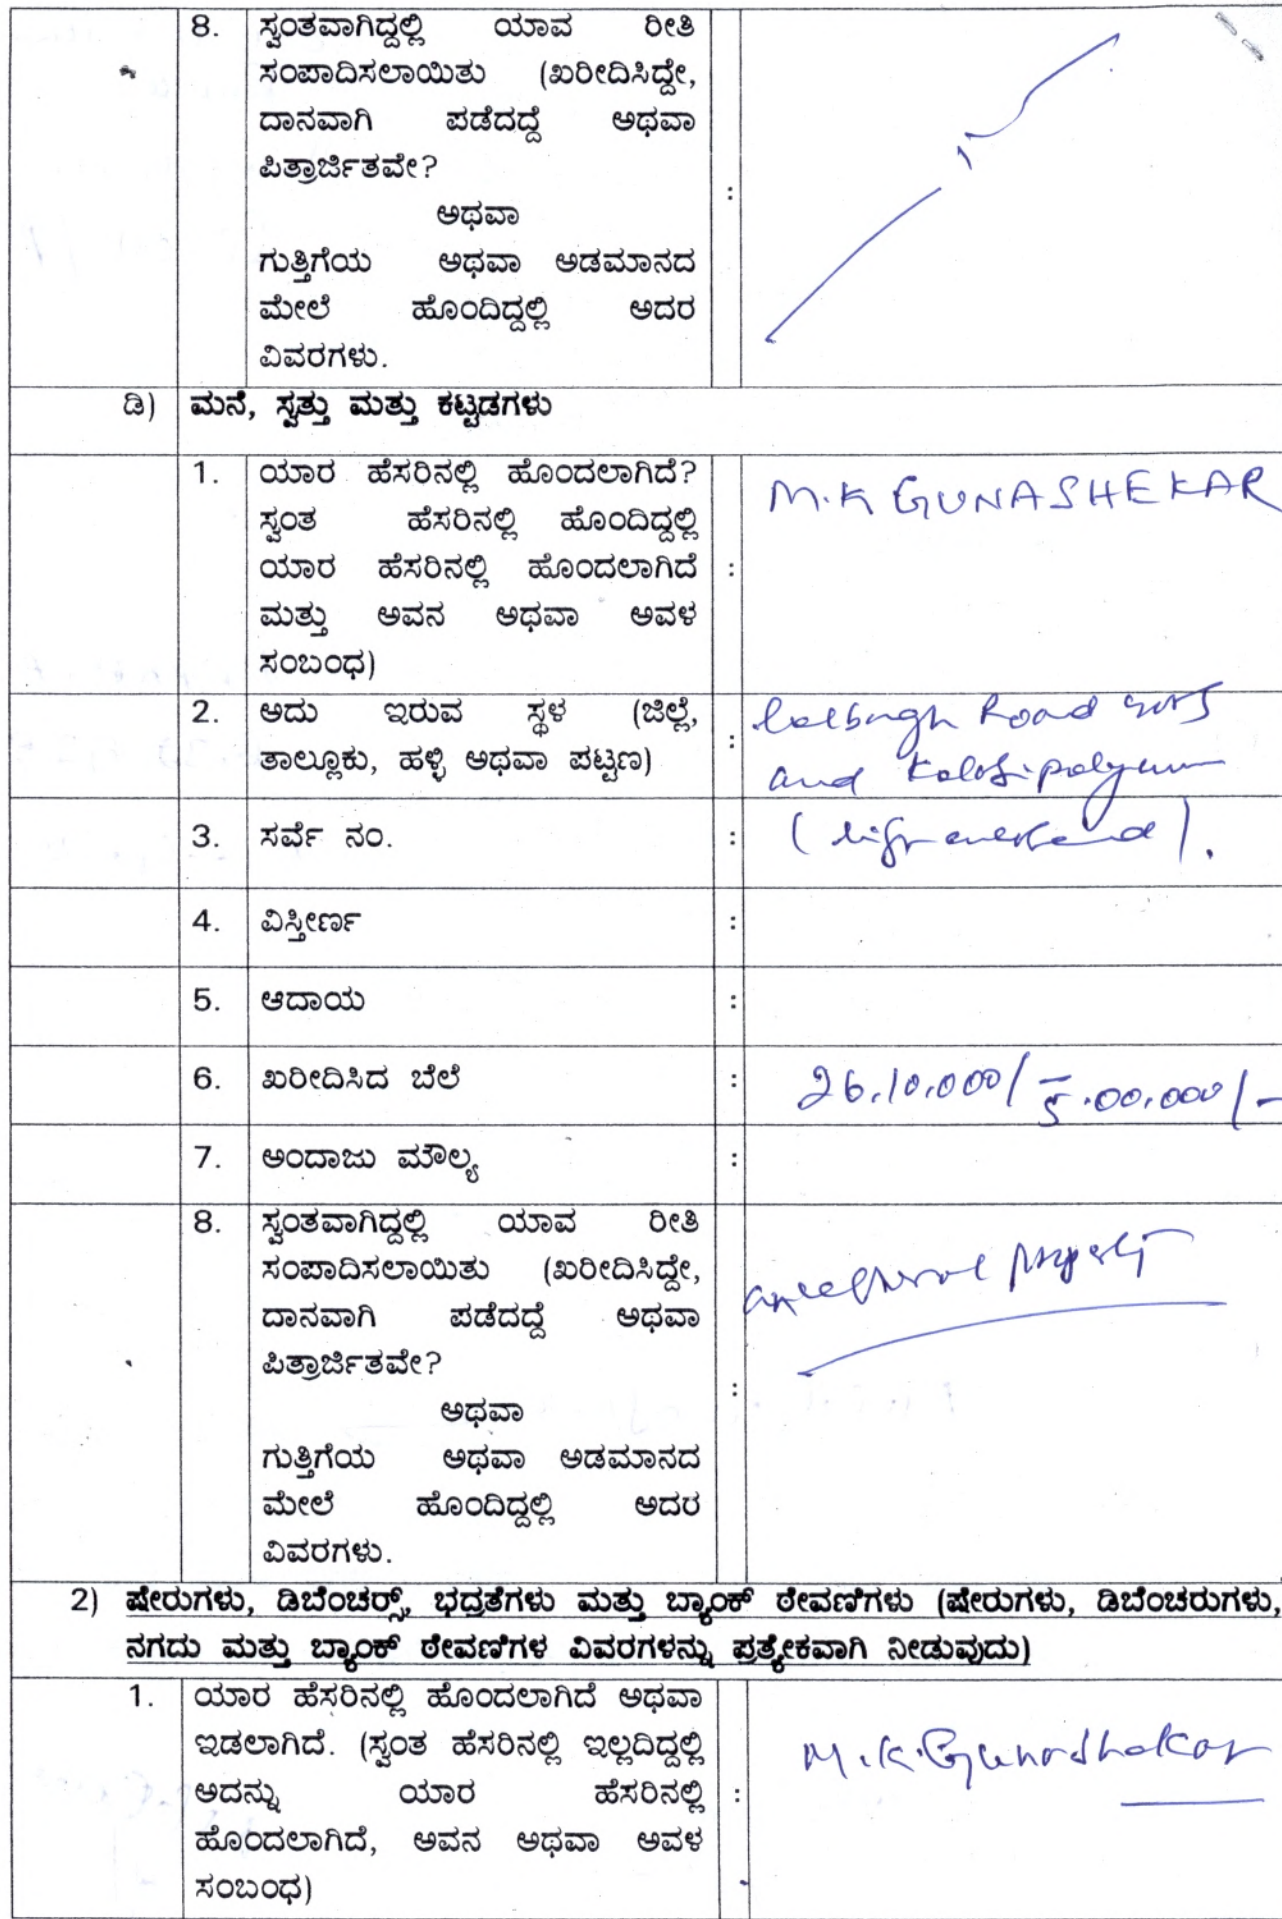 8. ಸ್ವಂತವಾಗಿದ್ದಲ್ಲಿ ಯಾವ ರೀತಿ
ಸಂಪಾದಿಸಲಾಯಿತು (ಖರೀದಿಸಿದ್ದೇ,
ದಾನವಾಗಿ ಪಡೆದದ್ದೆ ಅಥವಾ
ಪಿತ್ರಾರ್ಜಿತವೇ?
:
ಅಥವಾ
ಗುತ್ತಿಗೆಯ ಅಥವಾ ಅಡಮಾನದ
ಮೇಲೆ ಹೊಂದಿದ್ದಲ್ಲಿ ಅದರ
ವಿವರಗಳು.
ಡಿ) ಮನೆ, ಸ್ವತ್ತು ಮತ್ತು ಕಟ್ಟಡಗಳು
1. ಯಾರ ಹೆಸರಿನಲ್ಲಿ ಹೊಂದಲಾಗಿದೆ? M.K GUNASHEKAR
ಸ್ವಂತ ಹೆಸರಿನಲ್ಲಿ ಹೊಂದಿದ್ದಲ್ಲಿ
ಯಾರ ಹೆಸರಿನಲ್ಲಿ ಹೊಂದಲಾಗಿದೆ :
ಮತ್ತು ಅವನ ಅಥವಾ ಅವಳ
ಸಂಬಂಧ)
2. ಅದು ಇರುವ ಸ್ಥಳ (ಜಿಲ್ಲೆ, Road
ತಾಲ್ಲೂಕು, ಹಳ್ಳಿ ಅಥವಾ ಪಟ್ಟಣ) : and
3. ಸರ್ವೆ ನಂ. :
4. ವಿಸ್ತೀರ್ಣ :
5. ಆದಾಯ :
6. ಖರೀದಿಸಿದ ಬೆಲೆ : 26.10.000/- 5.00.000/-
7. ಅಂದಾಜು ಮೌಲ್ಯ :
8. ಸ್ವಂತವಾಗಿದ್ದಲ್ಲಿ ಯಾವ ರೀತಿ
ಸಂಪಾದಿಸಲಾಯಿತು (ಖರೀದಿಸಿದ್ದೇ,
ದಾನವಾಗಿ ಪಡೆದದ್ದೆ ಅಥವಾ
ಪಿತ್ರಾರ್ಜಿತವೇ?
:
ಅಥವಾ
ಗುತ್ತಿಗೆಯ ಅಥವಾ ಅಡಮಾನದ
ಮೇಲೆ ಹೊಂದಿದ್ದಲ್ಲಿ ಅದರ
ವಿವರಗಳು.
2) ಷೇರುಗಳು, ಡಿಬೆಂಚರ್ಸ್, ಭದ್ರತೆಗಳು ಮತ್ತು ಬ್ಯಾಂಕ್ ಠೇವಣಿಗಳು (ಷೇರುಗಳು, ಡಿಬೆಂಚರುಗಳು,
ನಗದು ಮತ್ತು ಬ್ಯಾಂಕ್ ಠೇವಣಿಗಳ ವಿವರಗಳನ್ನು ಪ್ರತ್ಯೇಕವಾಗಿ ನೀಡುವುದು)
1. ಯಾರ ಹೆಸರಿನಲ್ಲಿ ಹೊಂದಲಾಗಿದೆ ಅಥವಾ
ಇಡಲಾಗಿದೆ. (ಸ್ವಂತ ಹೆಸರಿನಲ್ಲಿ ಇಲ್ಲದಿದ್ದಲ್ಲಿ M.K.Gunashekar
ಅದನ್ನು ಯಾರ ಹೆಸರಿನಲ್ಲಿ :
ಹೊಂದಲಾಗಿದೆ, ಅವನ ಅಥವಾ ಅವಳ
ಸಂಬಂಧ)